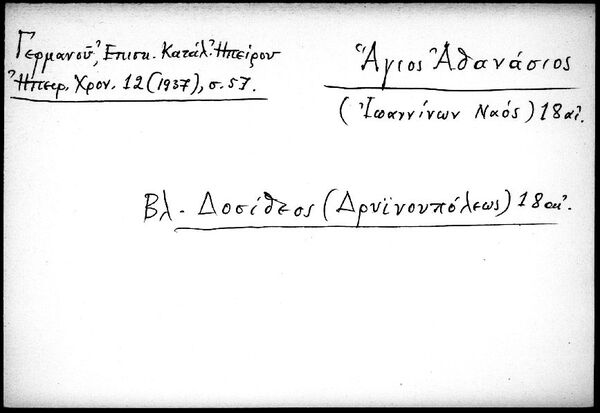 Γερμανοῦ, Ἐπισκ. Κατάλ. Ἠπείρου
Ἠπειρ. Χρον. 12 (1937), σ. 57.
Ἅγιος Ἀθανάσιος
(Ἰωαννίνων Ναός) 18 αἰ.
Βλ. Δοσίθεος (Δρυϊνουπόλεως) 18 αἰ.